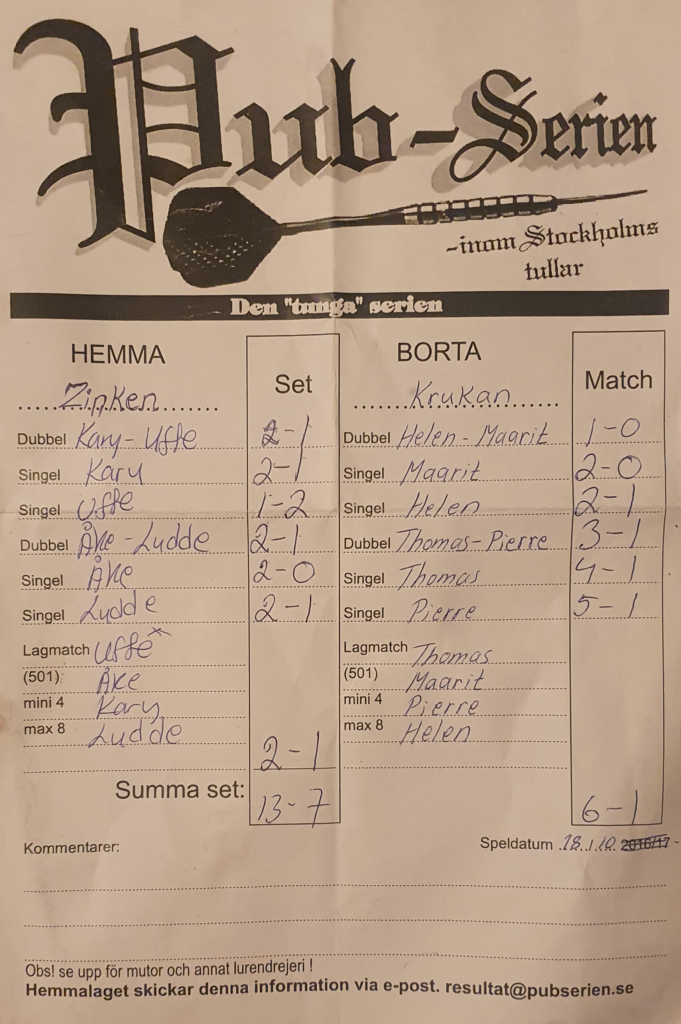 Pub-Serien
-inom Stockholms
tullar
Den "tunga" serien
HEMMA Set BORTA Match
Zinken Krukan
Dubbel Kary-Uffe 2-1 Dubbel Helen-Maarit 1-0
Singel Kary 2-1 Singel Maarit 2-0
Singel Uffe 1-2 Singel Helen 2-1
Dubbel Åke-Ludde 2-1 Dubbel Thomas-Pierre 3-1
Singel Åke 2-0 Singel Thomas 4-1
Singel Ludde 2-1 Singel Pierre 5-1
Lagmatch Uffe Lagmatch Thomas
(501) Åke (501) Maarit
mini 4 Kary mini 4 Pierre
max 8 Ludde max 8 Helen
2-1
Summa set: 13-7 6-1
Kommentarer: Speldatum 18/10 2016/17
Obs! se upp för mutor och annat lurendrejeri !
Hemmalaget skickar denna information via e-post. resultat@pubserien.se